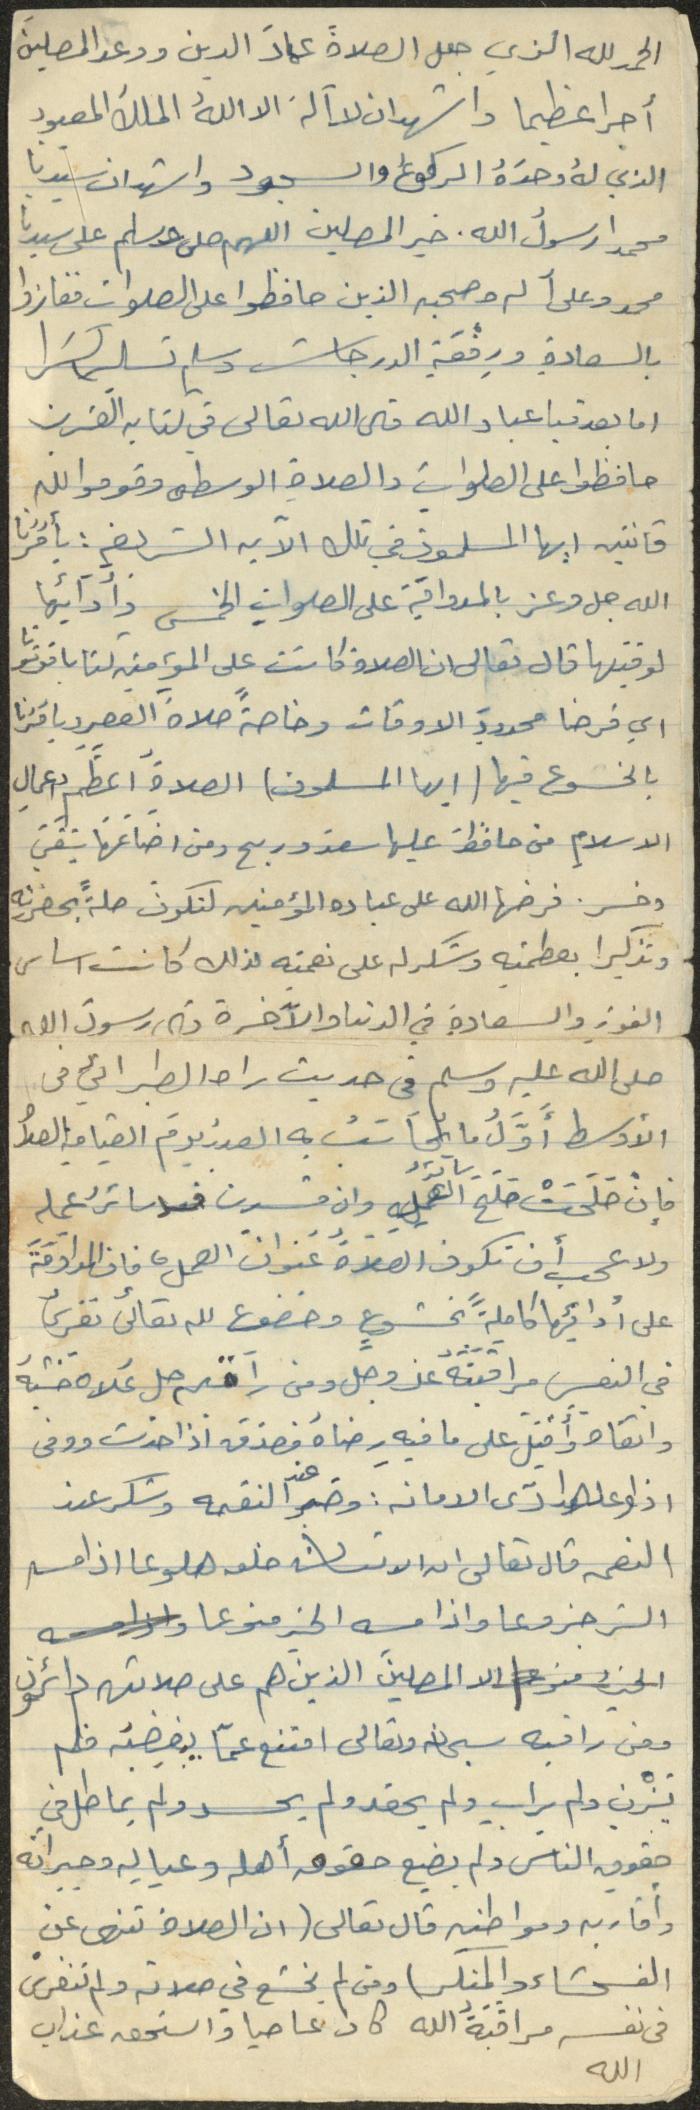 الحمد لله الذي جعل الصلاةَ عمادَ الدين ووعد المصلينَ
أجرا عظيما واشهد ان لا آله الا اللهُ الملكُ المعبود
الذي لهُ وحدَهُ الركوعُ والسجود واشهد ان سيدنا
محمدا رسولُ الله . خير المصلين اللهم صل وسلم على سيدنا
محمد وعلى آله وصحبه الذين حافظوا على الصلوات ففازوا
بالسعادةِ ورِفْعَةِ الدرجات وسلم تسليما كثيرا
اما بعد فيا عباد الله قال الله تعالى في كتابه القرءن
حافظوا على الصلواتِ والصلاةِ الوسطى وقوموا لله
قانتين ايها المسلمون في تلك الآيه الشريفةِ : يأمُرُنا
الله جل وعز بالمداومةِ على الصلواتِ الخمس وأدآئِها
لوقتها قال تعالى ان الصلاة كانت على المؤمنين كتابا موقوتا
اي فرضا محدودَ الاوقات وخاصةً صلاةَ العصرِ ويامُرُنا
بالخشوع فيها (ايها المسلمون) الصلاةُ اعظَمُ اعمالِ
الاسلامِ من حافظَ عليها سعد وربح ومن اضاعَهَا شَقيَ
وخسر . فرضها الله على عباده المؤمنين لتكونَ صلةً بحضرته
وتذكيرا بعظمتِهِ وشكرا له على نعمتِهِ لذلك كانت اساس
الفوزِ والسعادةِ في الدنيا والآخرة قال رسول الله
صلى الله عليه وسلم في حديث رواه الطبرانيُّ في
الأوسط أوَّلُ ما يُحاسَبُ به العبدُ يومَ القيامة الصلاةُ
فإنْ صَلَحَتْ صَلَحَ سائرُ العملِ وان فسدت فسد سائرُ عمله
ولا عجب أن تكونَ الصلاةُ عُنوانَ العملِ فان المداومَةَ
على أدائِها كاملةً بخشوعٍ وخضوع لله تعالى تغرسُ
في النفس مراقبَتَهُ عز وجل ومن راقبه جل عُلاه خَشيَهُ
واتقاه وأقبل على ما فيهِ رضاهُ فصدق اذا حدث ووفى
اذا عاهد وادّى الامانه : وصبر عند النقمه وشكر عند
النعمه قال تعالى ان الانسان خلق هلوعا اذا مسه
الشر جزوعا واذا مسه الخير منوعا واذا مسه
الخير منوعا الا المصلينَ الذينَ هم على صلاتهم دائمونَ
ومن راقبه سبحانه وتعالى امتنع عمّا يُغضِبُه فلم
يَزْنِ ولم يرابِ ولم يحقد ولم يحسد ولم يماطل في
حقوقِ الناس ولم يضيع حقوق أهله وعيالِه وجيرانه
وأقاربه ومواطنيه قال تعالى (ان الصلاة تنهى عن
الفحشاء والمنكر) ومن لم يخشع في صلاته ولم تنغرسْ
في نفسه مراقبَةُ الله كان عاصيا واستحق عذاب
الله